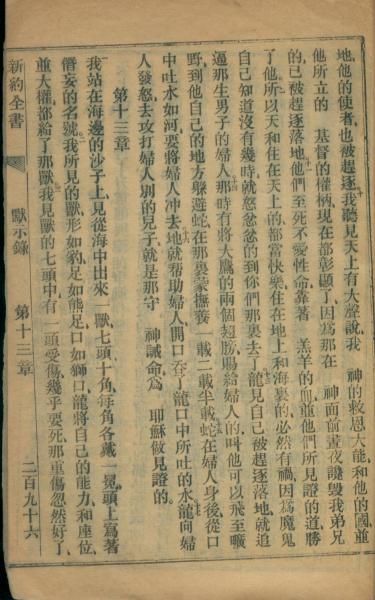 地他的使者、也被趕逐我聽見天上有大聲說、我 神的救恩大能和他的國、並
他所立的 基督的權柄現在都彰顯了、因爲那在 神面前晝夜譭謗我弟兄
的、已被趕逐落地他們至死不愛性命靠著 羔羊的血、並他們所見證的道、勝
了他、所以天和住在天上的、都當快樂、住在地上和海裏的、必然有禍、因爲魔鬼
自己知道沒有幾時、就怒忿忿的到你們那裏去了龍見自己被趕逐落地、就追
逼那生男子的婦人那時有將大鷹的兩個翅膀、賜給婦人的、叫他可以飛至曠
野、到他自己的地方、躲避蛇、在那裏蒙撫養一載二載半載蛇在婦人身後、從口
中吐水如河、要將婦人冲去地就帮助婦人、開口吞了龍口中所吐的水龍向婦
人發怒、去攻打婦人別的兒子、就是那守 神誡命、爲 耶穌做見證的。
第十三章
我站在海邊的沙子上、見從海中出來一獸、七頭十角、每角各戴一冕、頭上寫著
僭妄的名號我所見的獸、形如豹、足如熊足、口如獅口、龍將自己的能力、和座位、
並大權、都給了那獸我見獸的七頭中、有一頭受傷、幾乎要死、那重傷忽然好了、
新約全書
默示錄
第十三章
二百九十六